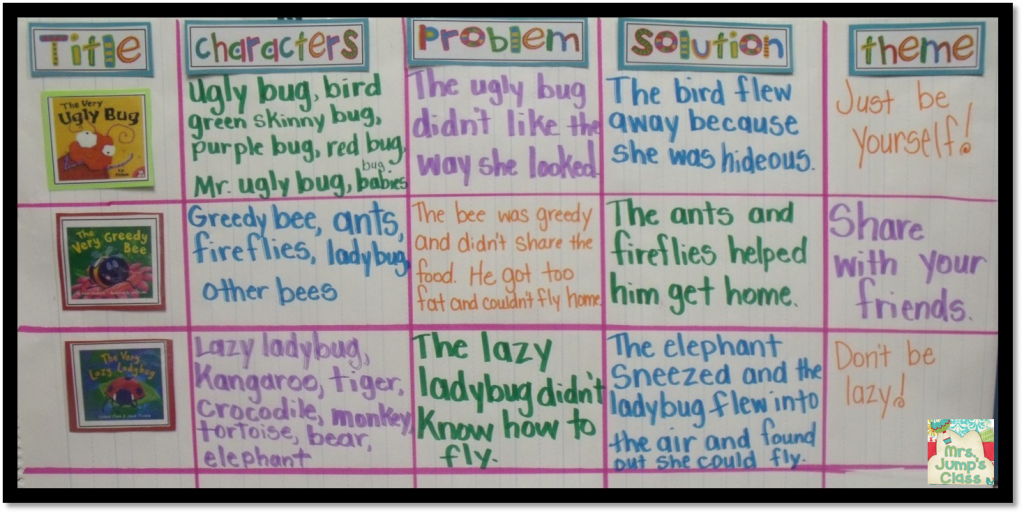 Title
characters
problem
solution
theme
The Very
Ugly Bug
Ugly bug, bird
green skinny bug,
purple bug, red bug,
bug.
Mr. ugly bug, babies
The ugly bug
didn't like the
way she looked.
The bird flew
away because
she was hideous.
Just be
yourself!
The
Very Greedy
Bee
Greedy bee, ants,
fireflies, ladybug,
other bees
The bee was greedy
and didn't share the
food. He got too
fat and couldn't fly home.
The ants and
fireflies helped
him get home.
Share
with your
friends.
The Very
Lazy Ladybug
Lazy ladybug,
Kangaroo, tiger,
crocodile, monkey,
tortoise, bear,
elephant
The lazy
ladybug didn't
Know how to
fly.
The elephant
Sneezed and the
ladybug flew into
the air and found
out she could fly.
Don't be
lazy!
Mrs.
Jump's
Class